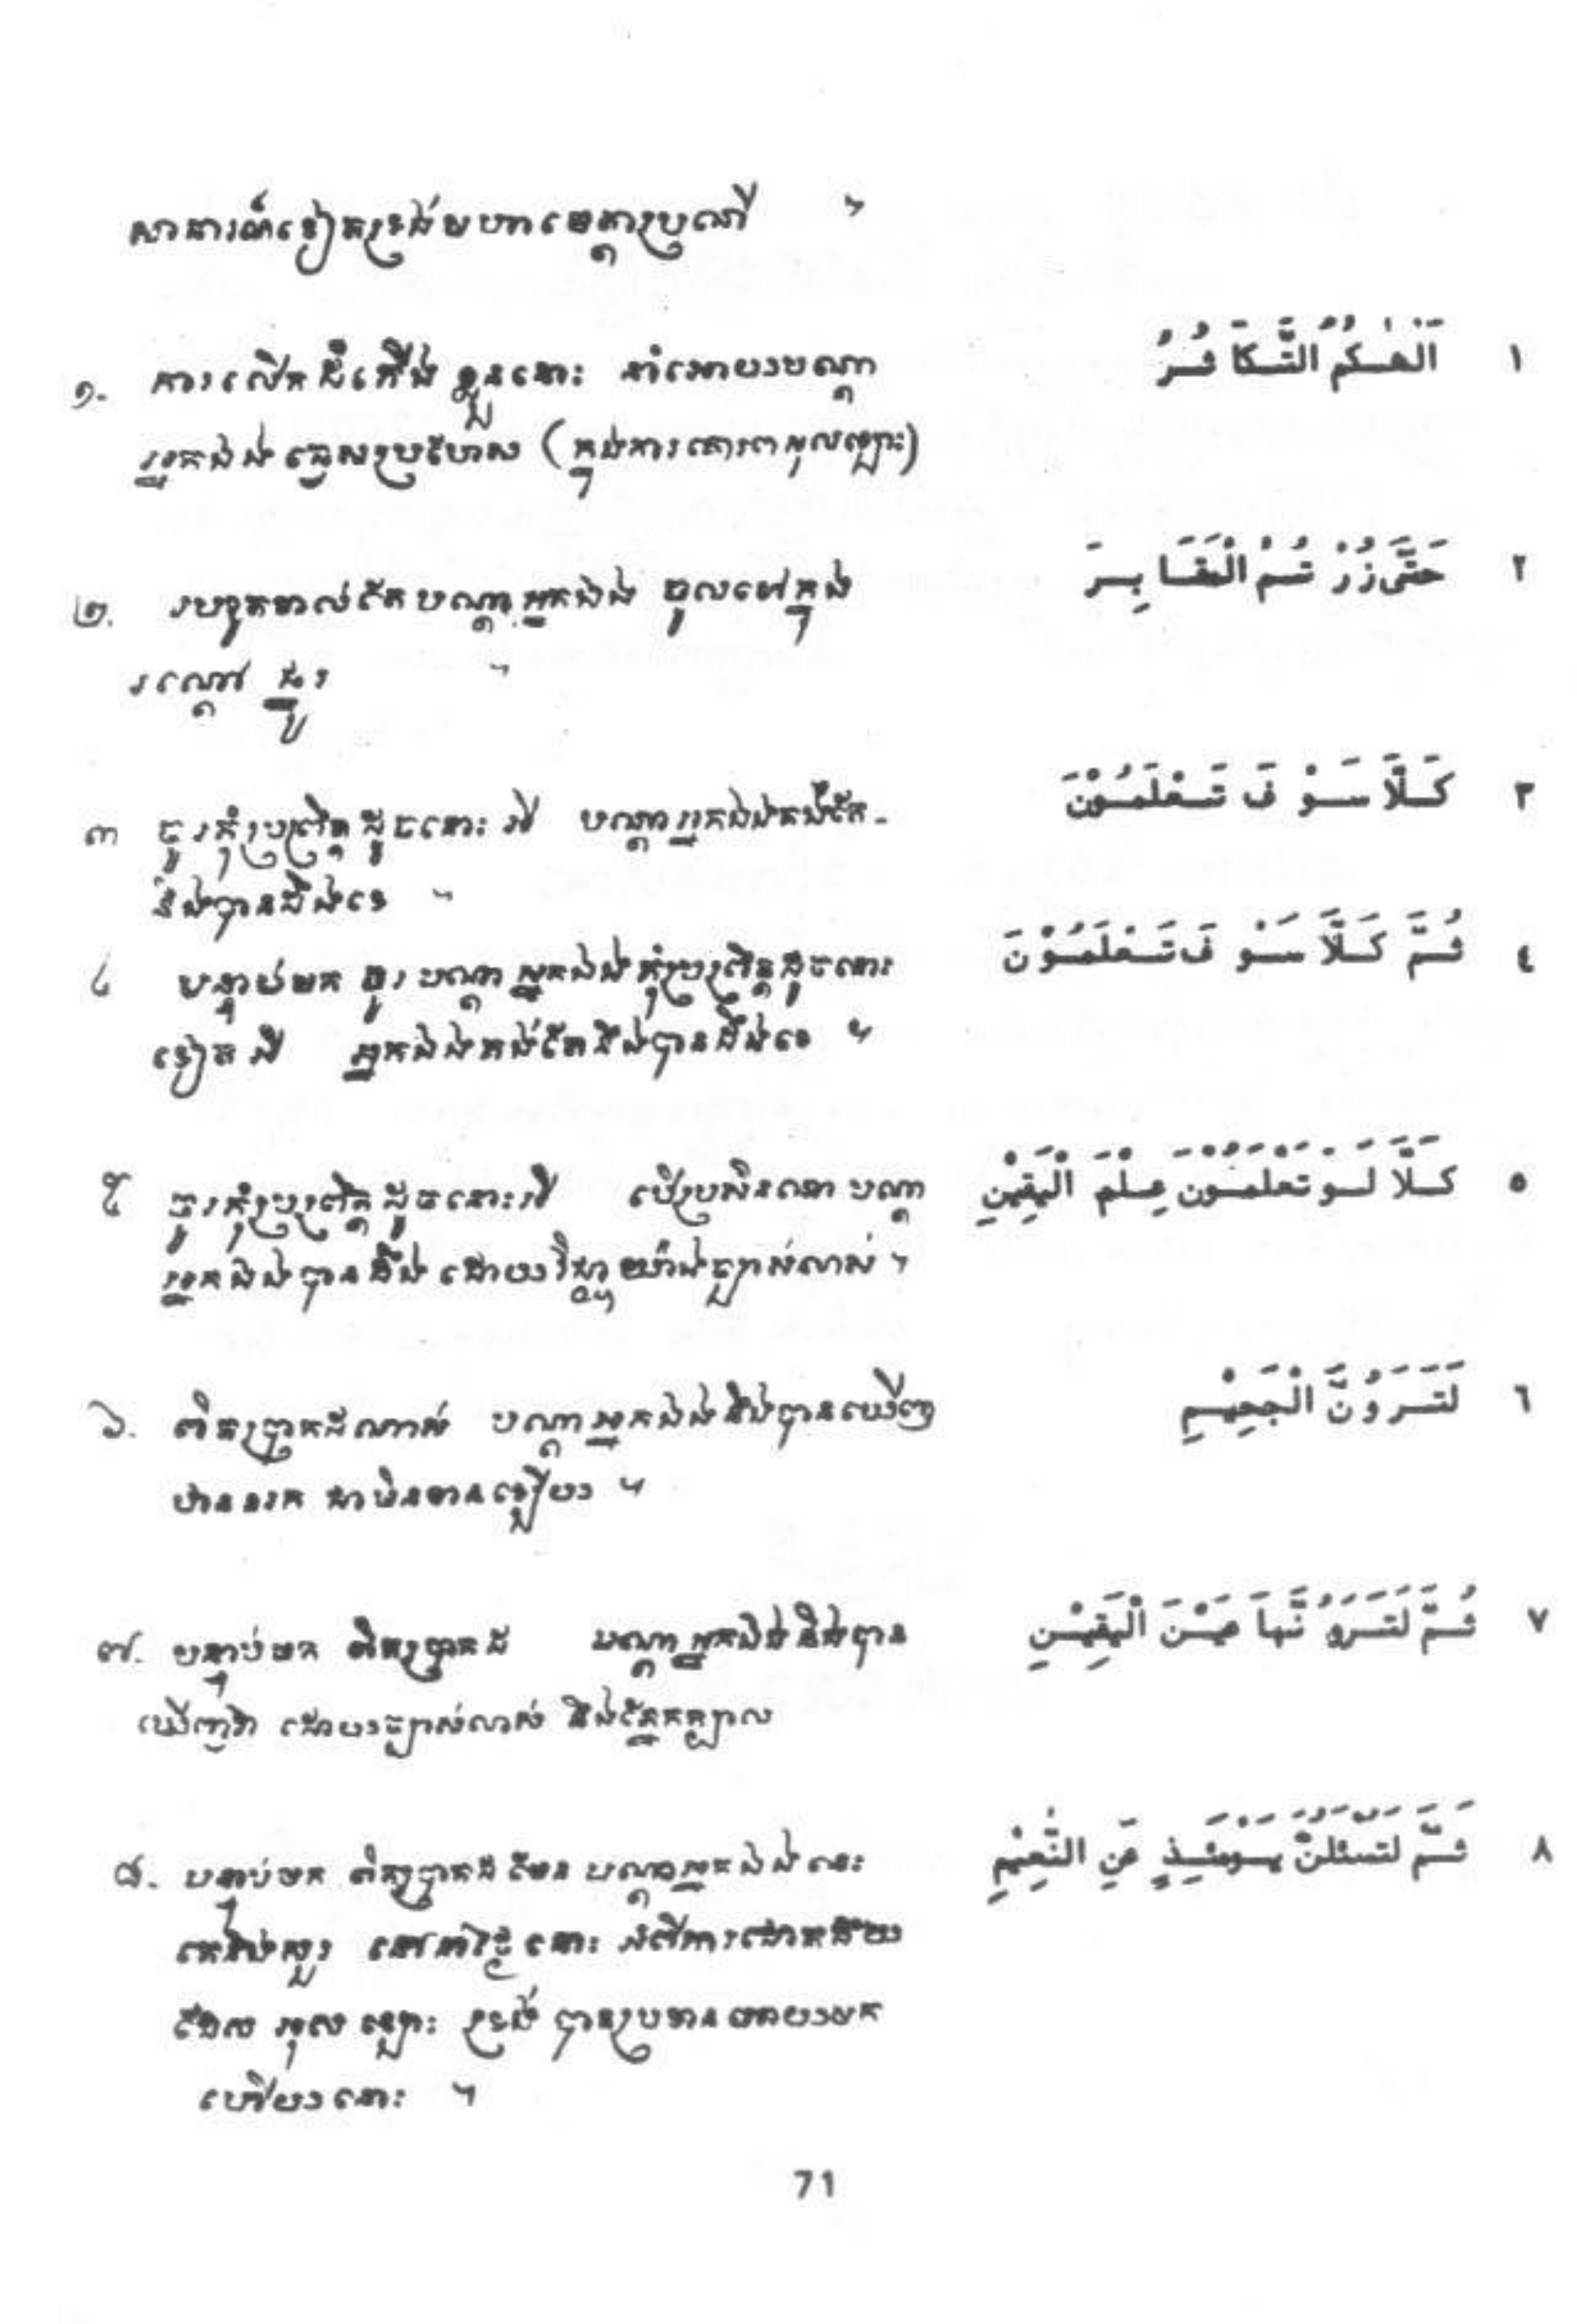 សាធារណ៍ទៀតទ្រង់មហាមេត្តាប្រណី ។
១. ការលើកដំកើង ខ្លួននោះ នាំអោយបណ្តា
អ្នកឯង ភ្លេសប្រហែស (ក្នុងការគោរពអុលឡោះ)
اَلْهٰكُمُ التَّكَاثُرُ ١
២. រហូតទាល់តែបណ្តាអ្នកឯង ចូលទៅក្នុង
រណ្តៅ ផ្នូរ ។
حَتَّى زُرْتُمُ الْمَقَابِرَ ٢
៣ ចូរកុំប្រព្រឹត្តដូចនោះ អី បណ្តាអ្នកឯងគង់តែ-
នឹងបានដឹងទេ ។
كَلَّا سَوْفَ تَعْلَمُوْنَ ٣
៤ បន្ទាប់មក ចូរ បណ្តាអ្នកឯងកុំប្រព្រឹត្តដូចនោះ
ទៀត អី អ្នកឯងគង់តែនឹងបានដឹងទេ ។
ثُمَّ كَلَّا سَوْفَ تَعْلَمُوْنَ ٤
៥ ចូរកុំប្រព្រឹត្តដូចនោះអី បើប្រសិនណា បណ្តា
អ្នកឯងបានដឹង ដោយវិជ្ជា យ៉ាងច្បាស់លាស់ ។
كَلَّا لَوْ تَعْلَمُوْنَ عِلْمَ الْيَقِيْنِ ٥
៦. ពិតប្រាកដណាស់ បណ្តាអ្នកឯងនឹងបានឃើញ
ឋាននរក ជាមិនខានឡើយ ។
لَتَرَوُنَّ الْجَحِيْمِ ٦
៧. បន្ទាប់មក ពិតប្រាកដ បណ្តាអ្នកឯងនឹងបាន
ឃើញវា ដោយច្បាស់លាស់ នឹងភ្នែកក្បាល
ثُمَّ لَتَرَوُنَّهَا عَيْنَ الْيَقِيْنِ ٧
៨. បន្ទាប់មក ពិតប្រាកដមែន បណ្តាអ្នកឯងនេះ
គេនឹងសួរ នៅនាថ្ងៃនោះ អំពីការ
ដែល អុលឡោះ ទ្រង់ បានប្រទានអោយមក
ហើយនោះ ។
ثُمَّ لَتُسْئَلُنَّ يَوْمَئِذٍ عَنِ النَّعِيْمِ ٨
71